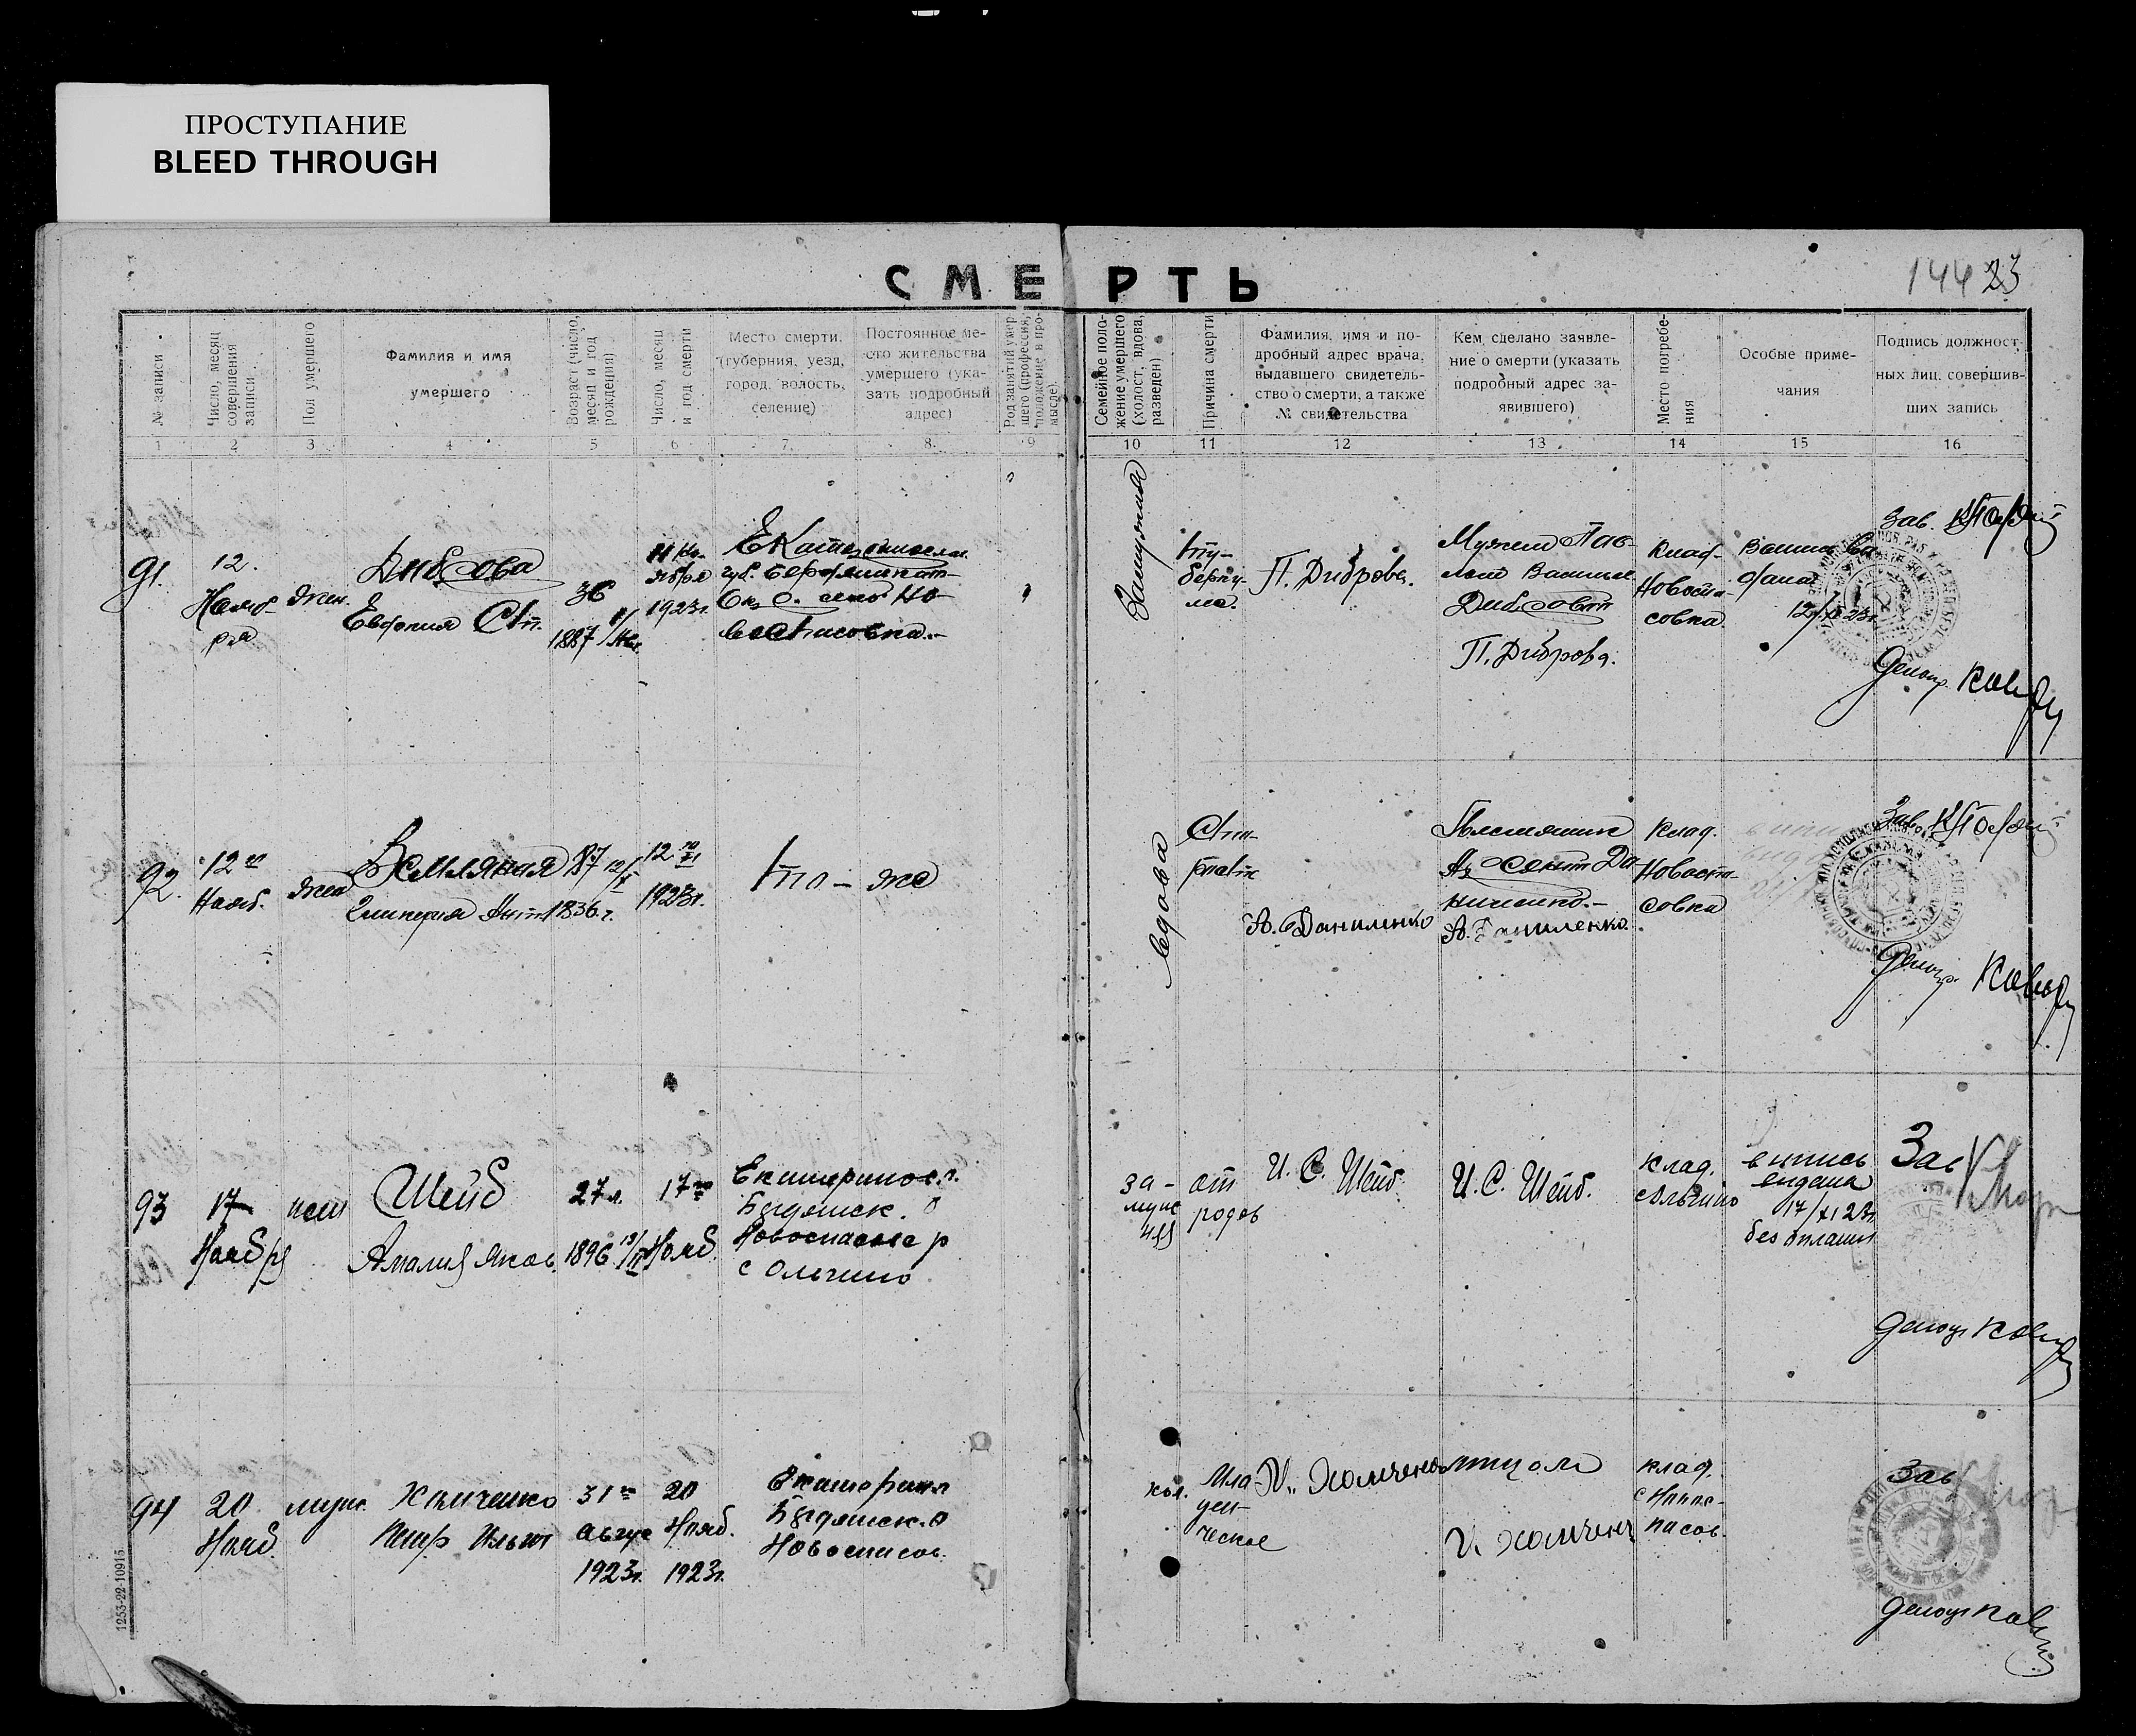 ПРОСТУПАНИЕ
BLEED THROUGH
СМЕРТЬ
144 23
№ записи
Число, месяц
совершения
записи
Пол умершего
Фамилия и имя
умершего
Возраст (число,
месяц и год
рождения)
Число, месяц
и год смерти
Место смерти,
(губерния, уезд,
город, волость,
селение)
Постоянное ме-
сто жительства
умершего (ука-
зать подробный
адрес)
Род занятий умер
шего (профессия,
положение в про-
мысле).
Семейное поло-
жение умершего
(холост, вдова,
разведен)
Причина смерти
Фамилия, имя и по-
дробный адрес врача,
выдавшего свидетель-
ство о смерти, а также
№ свидетельства
Кем сделано заявле-
ние о смерти (указать
подробный адрес за-
явившего)
Место погребе-
ния
Особые приме-
чания
Подпись должност-
ных лиц, совершив-
ших запись
1 2 3 4 5 6 7. 8. 9 10 11 12 13 14 15 16
91.
12.
Нояб-
ря
жен.
Диброва
Евфения Ст.
36
1887
11 Но-
ября
1923г.
Екатеринослав.
губ. Бердянск
Ок. село Но-
воспасовка.-
Замужняя
Ту-
берку-
лез.
П. Диброва.
Мужем Пав-
лом Василье
Дибровым
П. Диброва.
Клад.
Новоспа-
совка.
Выпись вы
дана
12/XI 23г.
Зав.
Делопр.
92.
12го
Нояб.
жен
Земляная
87
1836 г.
12го
XI
1923г.
То - же
вдова
А. Даниленко
Племянник
Да
ниленко.-
А. Даниленко.
Клад.
Новоспа-
совка
Зав.
Делопр.
93
17
Ноября
жен
Шейб
Амалия Яков.
27 л.
1896
17го
Нояб.
Екатериносл.
Бердянск. о
Новоспасске р
с Ольгино
за-
муж
няя
от
родов
И. С. Шейб.
И. С. Шейб.
клад.
с Ольгино
выпись
выдана
17/XI 23г.
без оплаты
Зав
Делопр
94
20
Нояб.
муж.
Хомченко
Петр Ильич
31го
Авгус
1923г.
20
Нояб.
1923г.
Екатеринл
Бердянск. о
Новоспасов.
хол.
Мла
ден-
ческое
И. Хомченко
отцом
И. Хомченк
клад.
с Ново-
пасов.
Зав
Делопр
1253-22 10915